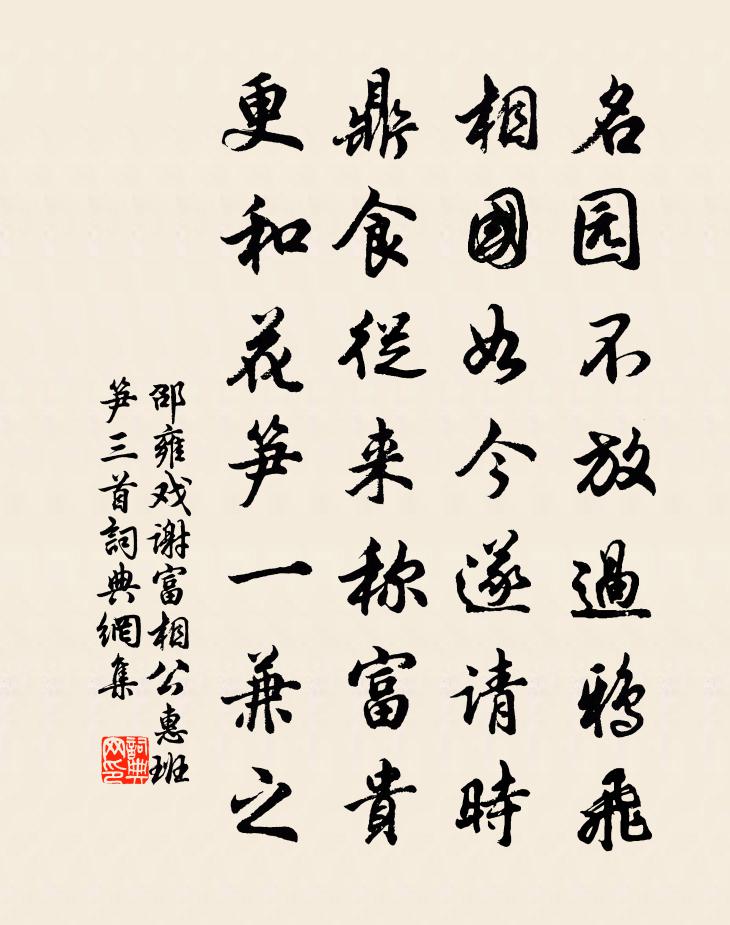 名园不放過鴉飛
相國如今遂请時
鼎食從来称富貴
更和花笋一兼之
邵雍戏谢富相公惠班
笋三首詞典網集
詞典
网印